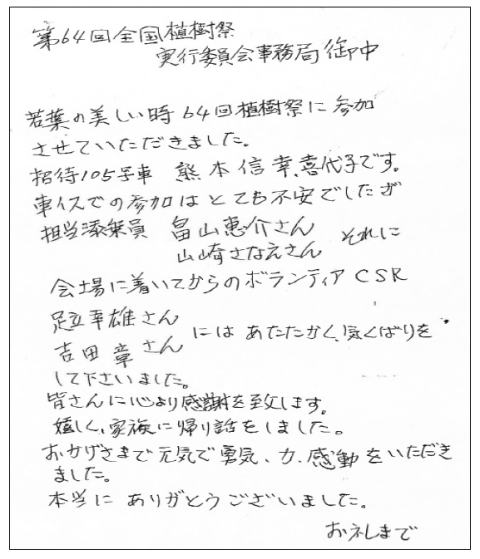 第64回全国植樹祭
実行委員会事務局御中
若葉の美しい時64回植樹祭に参加
させていただきました。
招待105号車 熊本信幸、喜代子です。
車イスでの参加はとても不安でしたが
担当添乗員 畠山恵介さん
山崎さなえさん それに
会場に着いてからのボランティアCSR
足立幸雄さん
吉田章さん にはあたたかく、気くばりを
して下さいました。
皆さんに心より感謝を致します。
嬉しく、家族に帰り話をしました。
おかげさまで元気で勇気、力、感動をいただき
ました。
本当にありがとうございました。
お礼まで